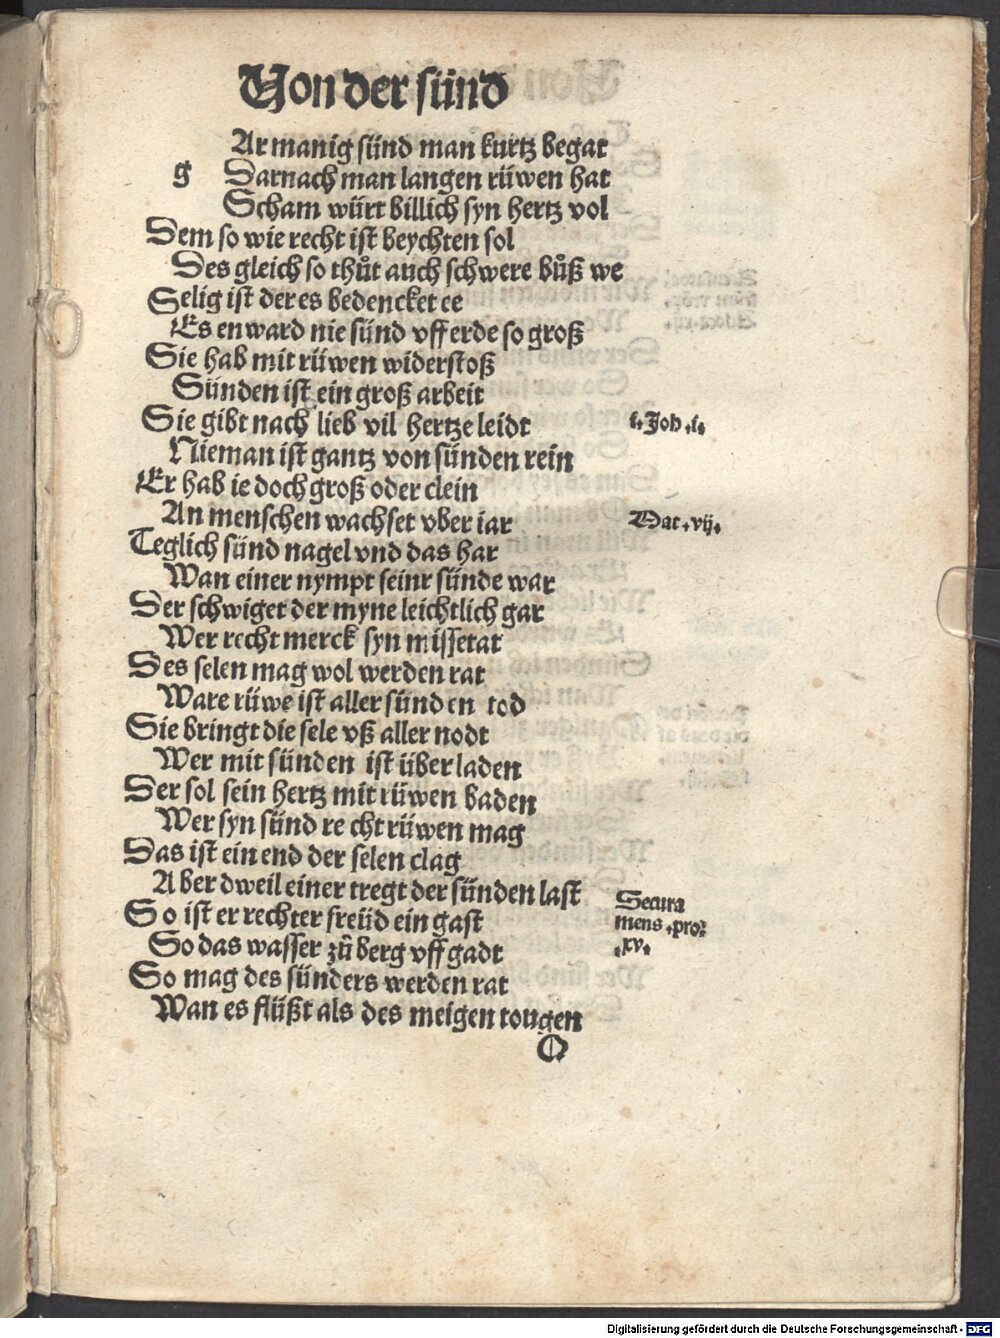 Von der sünd
g
Ar manig sünd man kurtz begat
Darnach man langen rüwen hat
Scham würt billich syn hertz vol
Dem so wie recht ist beychten sol
Des gleich so thůt auch schwere bůß we
Selig ist der es bedencket ee
Es en ward nie sünd vff erde so groß
Sie hab mit rüwen widerstoß
Sünden ist ein groß arbeit
Sie gibt nach lieb vil hertze leidt
i. Joh. i.
Nieman ist gantz von sünden rein
Er hab ie doch groß oder clein
An menschen wachset vber iar
Mat. vij.
Teglich sünd nagel vnd das har
Wan einer nympt seinr sünde war
Der schwiget der myne leichtlich gar
Wer recht merck syn missetat
Des selen mag wol werden rat
Ware rüwe ist aller sünden tod
Sie bringt die sele vß aller nodt
Wer mit sünden ist überladen
Der sol sein hertz mit rüwen baden
Wer syn sünd recht rüwen mag
Das ist ein end der selen clag
Aber dweil einer tregt der sünden last
Secura
So ist er rechter freüd ein gast
mens. pro?
So das wasser zů berg vff gadt
.xv.
So mag des sünders werden rat
Wan es flüßt als des meigen tougen
O
Digitalisierung gefördert durch die Deutsche Forschungsgemeinschaft - DFG